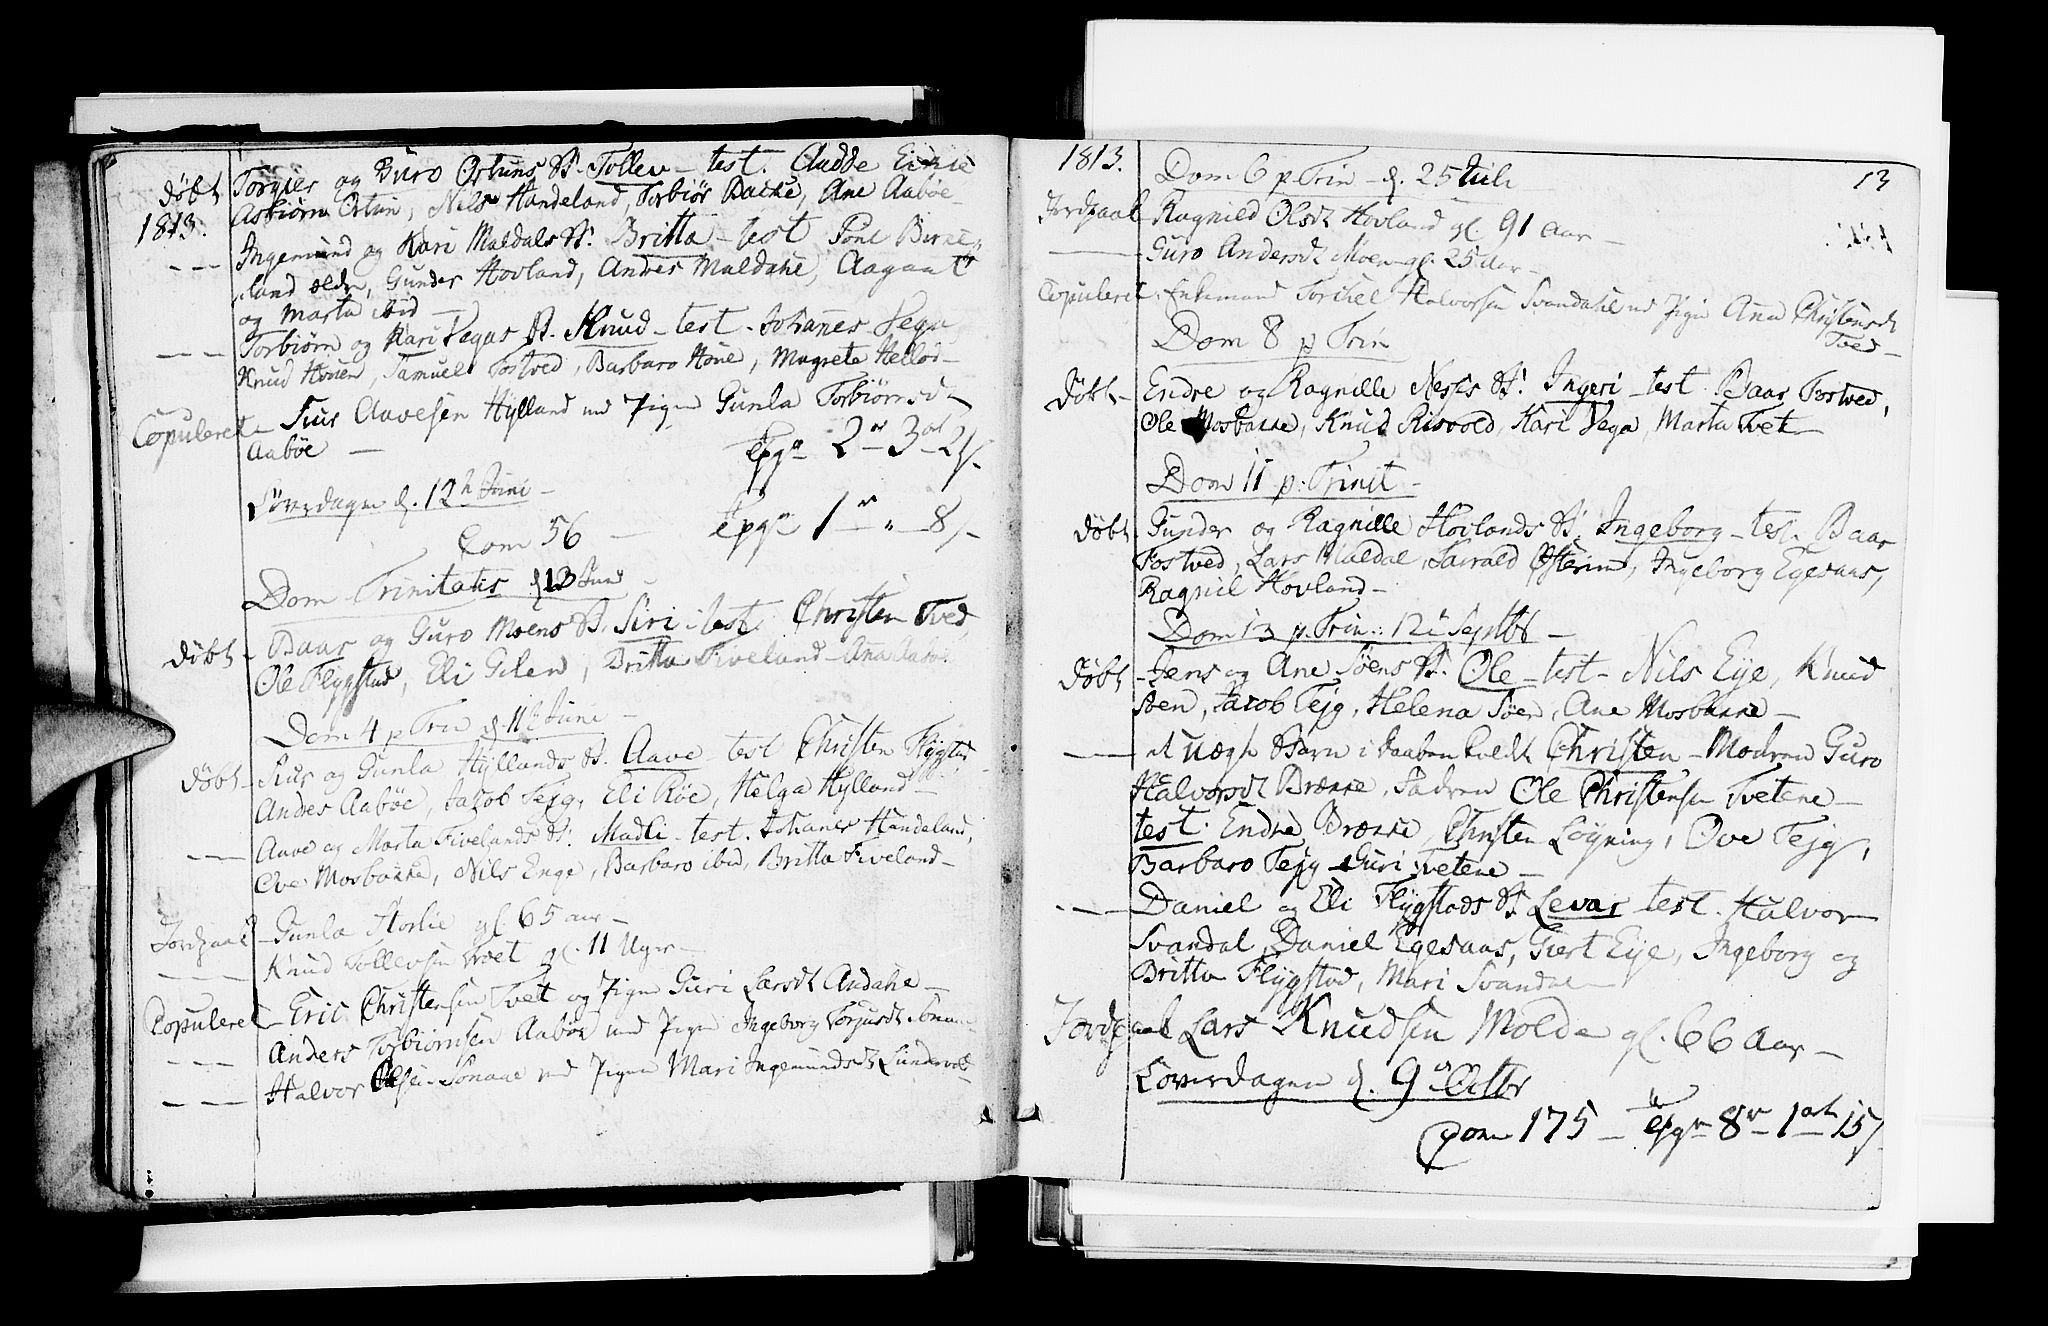 Døbt Torgier og Guro Ørtuns B. Tollev - test. Audde Eikie
1813. Asbiørn Ortun, Nils Handeland, Torbiør Backe, Ane Aabøe -
--- Ingemund og Kari Maldals B: Britta - test Tone Birke-
land ældr, Gunder Hovland, Andres Maldahl, Aagaat
og Marta ibid -
--- Torbiørn og Kari Vegas B. Knud - test. Johannes Vega
Knud Houen, Samuel Fostved, Barbaro Houe, Magrete
Copuleret - Siur Aavesen Hylland med Pigen Gunla Torbiørnsd.
Aabøe - 2 - 3 - 2/-
Löverdagen d. 12 Juni -
Com 56 - 1 " 8/-
Dom Trinitatis d 13 Juni -
Døbt - Baar og Guro Moens B. Siri - test. Christen Tved
Ole Flygstad, Eli Gilen, Britta Fiveland - Ana
Dom 4 p Trin d 11 -
Døbt - Siur og Gunla Hyllands B. Aave - test Christen Flygstad
Andres Aabøe, Jacob Tejg, Eli Røe, Helga Hylland -
--- Aave og Marta Fivelands B: Madli - test. Johanes Handeland,
Ove Mosbakke, Nils Enge, Barbaro ibid, Britta Fiveland -
Jordpaak - Gunla gl. 65 aar -
--- Knud Tollevsen Tvet gl. 11 Uger -
Copuleret - Eric Christensen Tvet og Pigen Guri Larsdt Andahl -
--- Anders Torbiørnsen Aabøe med Pigen Ingeborg Torjusdt
--- Halvor Olsen Sonaae med Pigen Mari Ingemundsdt Lundevold
1813. Dom 6 p Trin - d. 25 Juli 13
Jordpaak - Ragnild Olsdt Hovland gl. 91 Aar -
--- Guro Andersdt Moen gl. 25 aar -
Copuleret - Enkemand Torkel Halvorsen Svandahl med Pigen Ana Christensdt
Tved -
Dom 8 p Trin
Døbt - Endre og Ragnille Neses B: Ingeri - test. Baar Fostved,
Ole Mosbakke, Knud Risvold, Kari Vega, Marta Tvet
Dom 11 p. Trinit -
Døbt - Gunder og Ragnille Hovlands B. Ingeborg - test. Baar
Fostved, Lars Maldal, Østerim, Ingeborg Egesaas,
Ragnil Hovland -
Dom 13 p. Trin: 12 Septbr -
Døbt - Jens og Ane Søens B. Ole - test - Nils Eye, Knud
Søen, Jacob Tejg, Helena Søen, Ane Mosbakke -
--- et uægte Barn i daaben kaldt Christen - Modren Guro
Halvorsdt Brække, Fadren Ole Christensen Tvetene -
test. Endre Brække, Christen Løyning, Ove Tejg,
Barbaro Tejg Guri Tvetene -
--- Daniel og Eli Flygstads B. Levar test. Halvor
Svandal, Daniel Egesaas, Giert Eye, Ingeborg og
Britta Flygstad, Mari Svandal
Jordpaak Lars Knudsen Molda gl. 66 Aar -
Löverdagen d. 9 Octbr
Com 175 - 8 - 1 - 15/